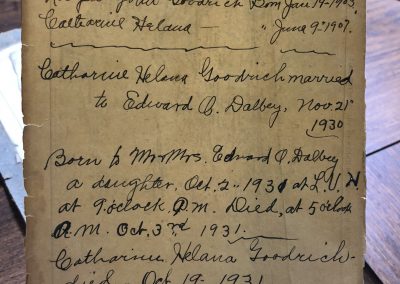 John Goodrich Born Jan 19-1903.
Catharine Helana — " June 9th 1907.
Catharine Helana Goodrich married
to Edward C. Dalbey, Nov. 21st
1930
Born to Mr & Mrs. Edward C. Dalbey
a daughter, Oct. 2- 1931 at L. U. H.
at 9 o'clock P.M. Died, at 5 o'clock
A.M. Oct. 3rd 1931.
Catharine Helana Goodrich-
died Oct 19- 1931